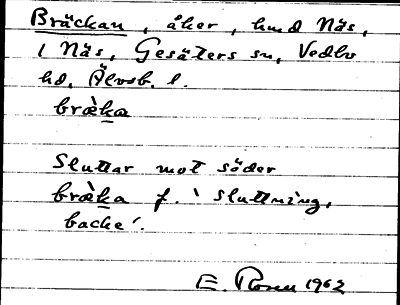 Bräckan, åker, hmd Näs,
1 Näs, Gesäters sn, Vedbo
hd, Älvsb. l.
bræ̀ka
Sluttar mot söder
bræ̀ka f. 'sluttning,
backe'.
E. 1962